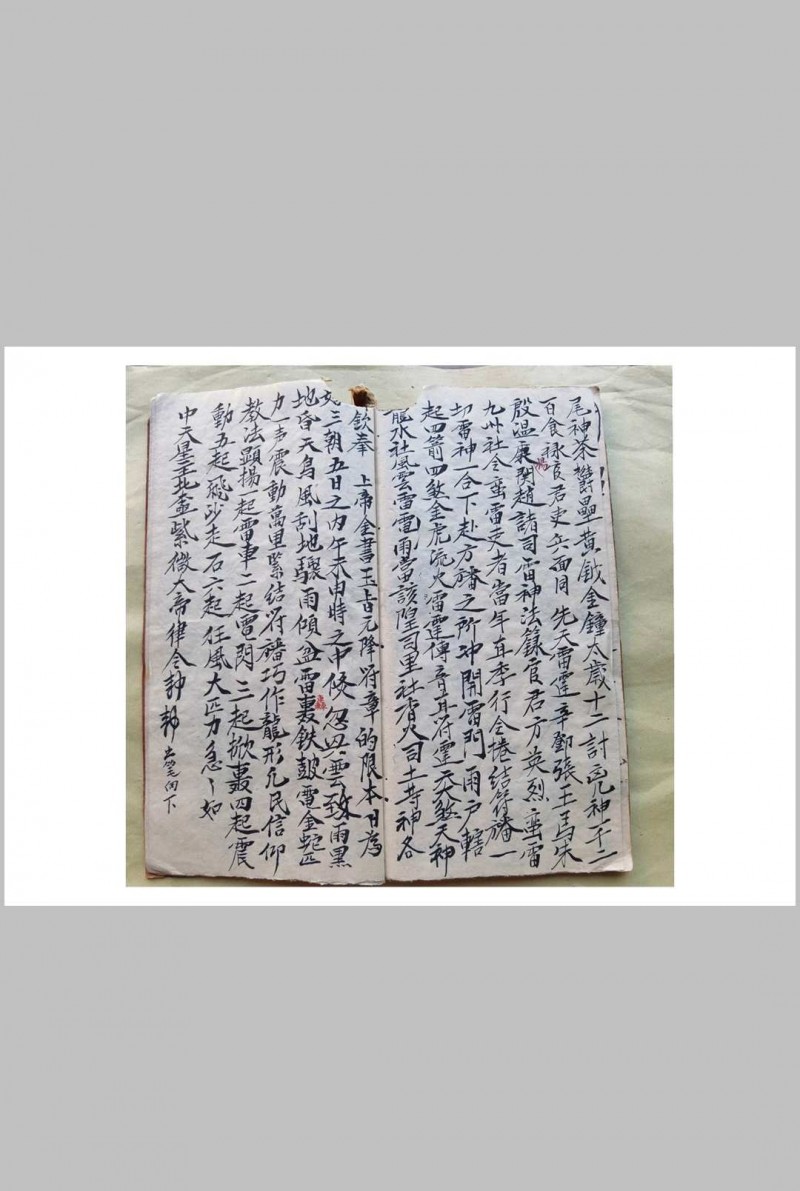 尾神荼欝壘黄鉞金鐘太歲十二計凶神一千二
百食祿官君吏兵面同 先天雷霆辛鄧張王馬朱
殷温康関趙諸司雷神法籙官君方英烈蠻雷
楊
九州社令蠻雷使者當年直季行令捲結符旛一
切雷神一合下赴方旛之所沖開雷門雨户轄
起四箭四煞金虎流火雷霆傳音耳符霆天煞天神
龍水社風雲雷電雨當該隍司里社省火司土等神各
欽奉 上帝金書玉旨元降符章的限本日為
始三朝五日之内午未申時之中倏忽興雲致雨黒
地昏天烏風刮地驟雨傾盆雷轟鉄皷電金蛇匹
轟
力一声震動萬里緊結符旛巧作龍形凢民信仰
教法顕揚一起雷車二起電閃三起掀轟四起震
動五起飛沙走石六起狂風大匹力急丶如
中天星主北極紫微大帝律令
向下